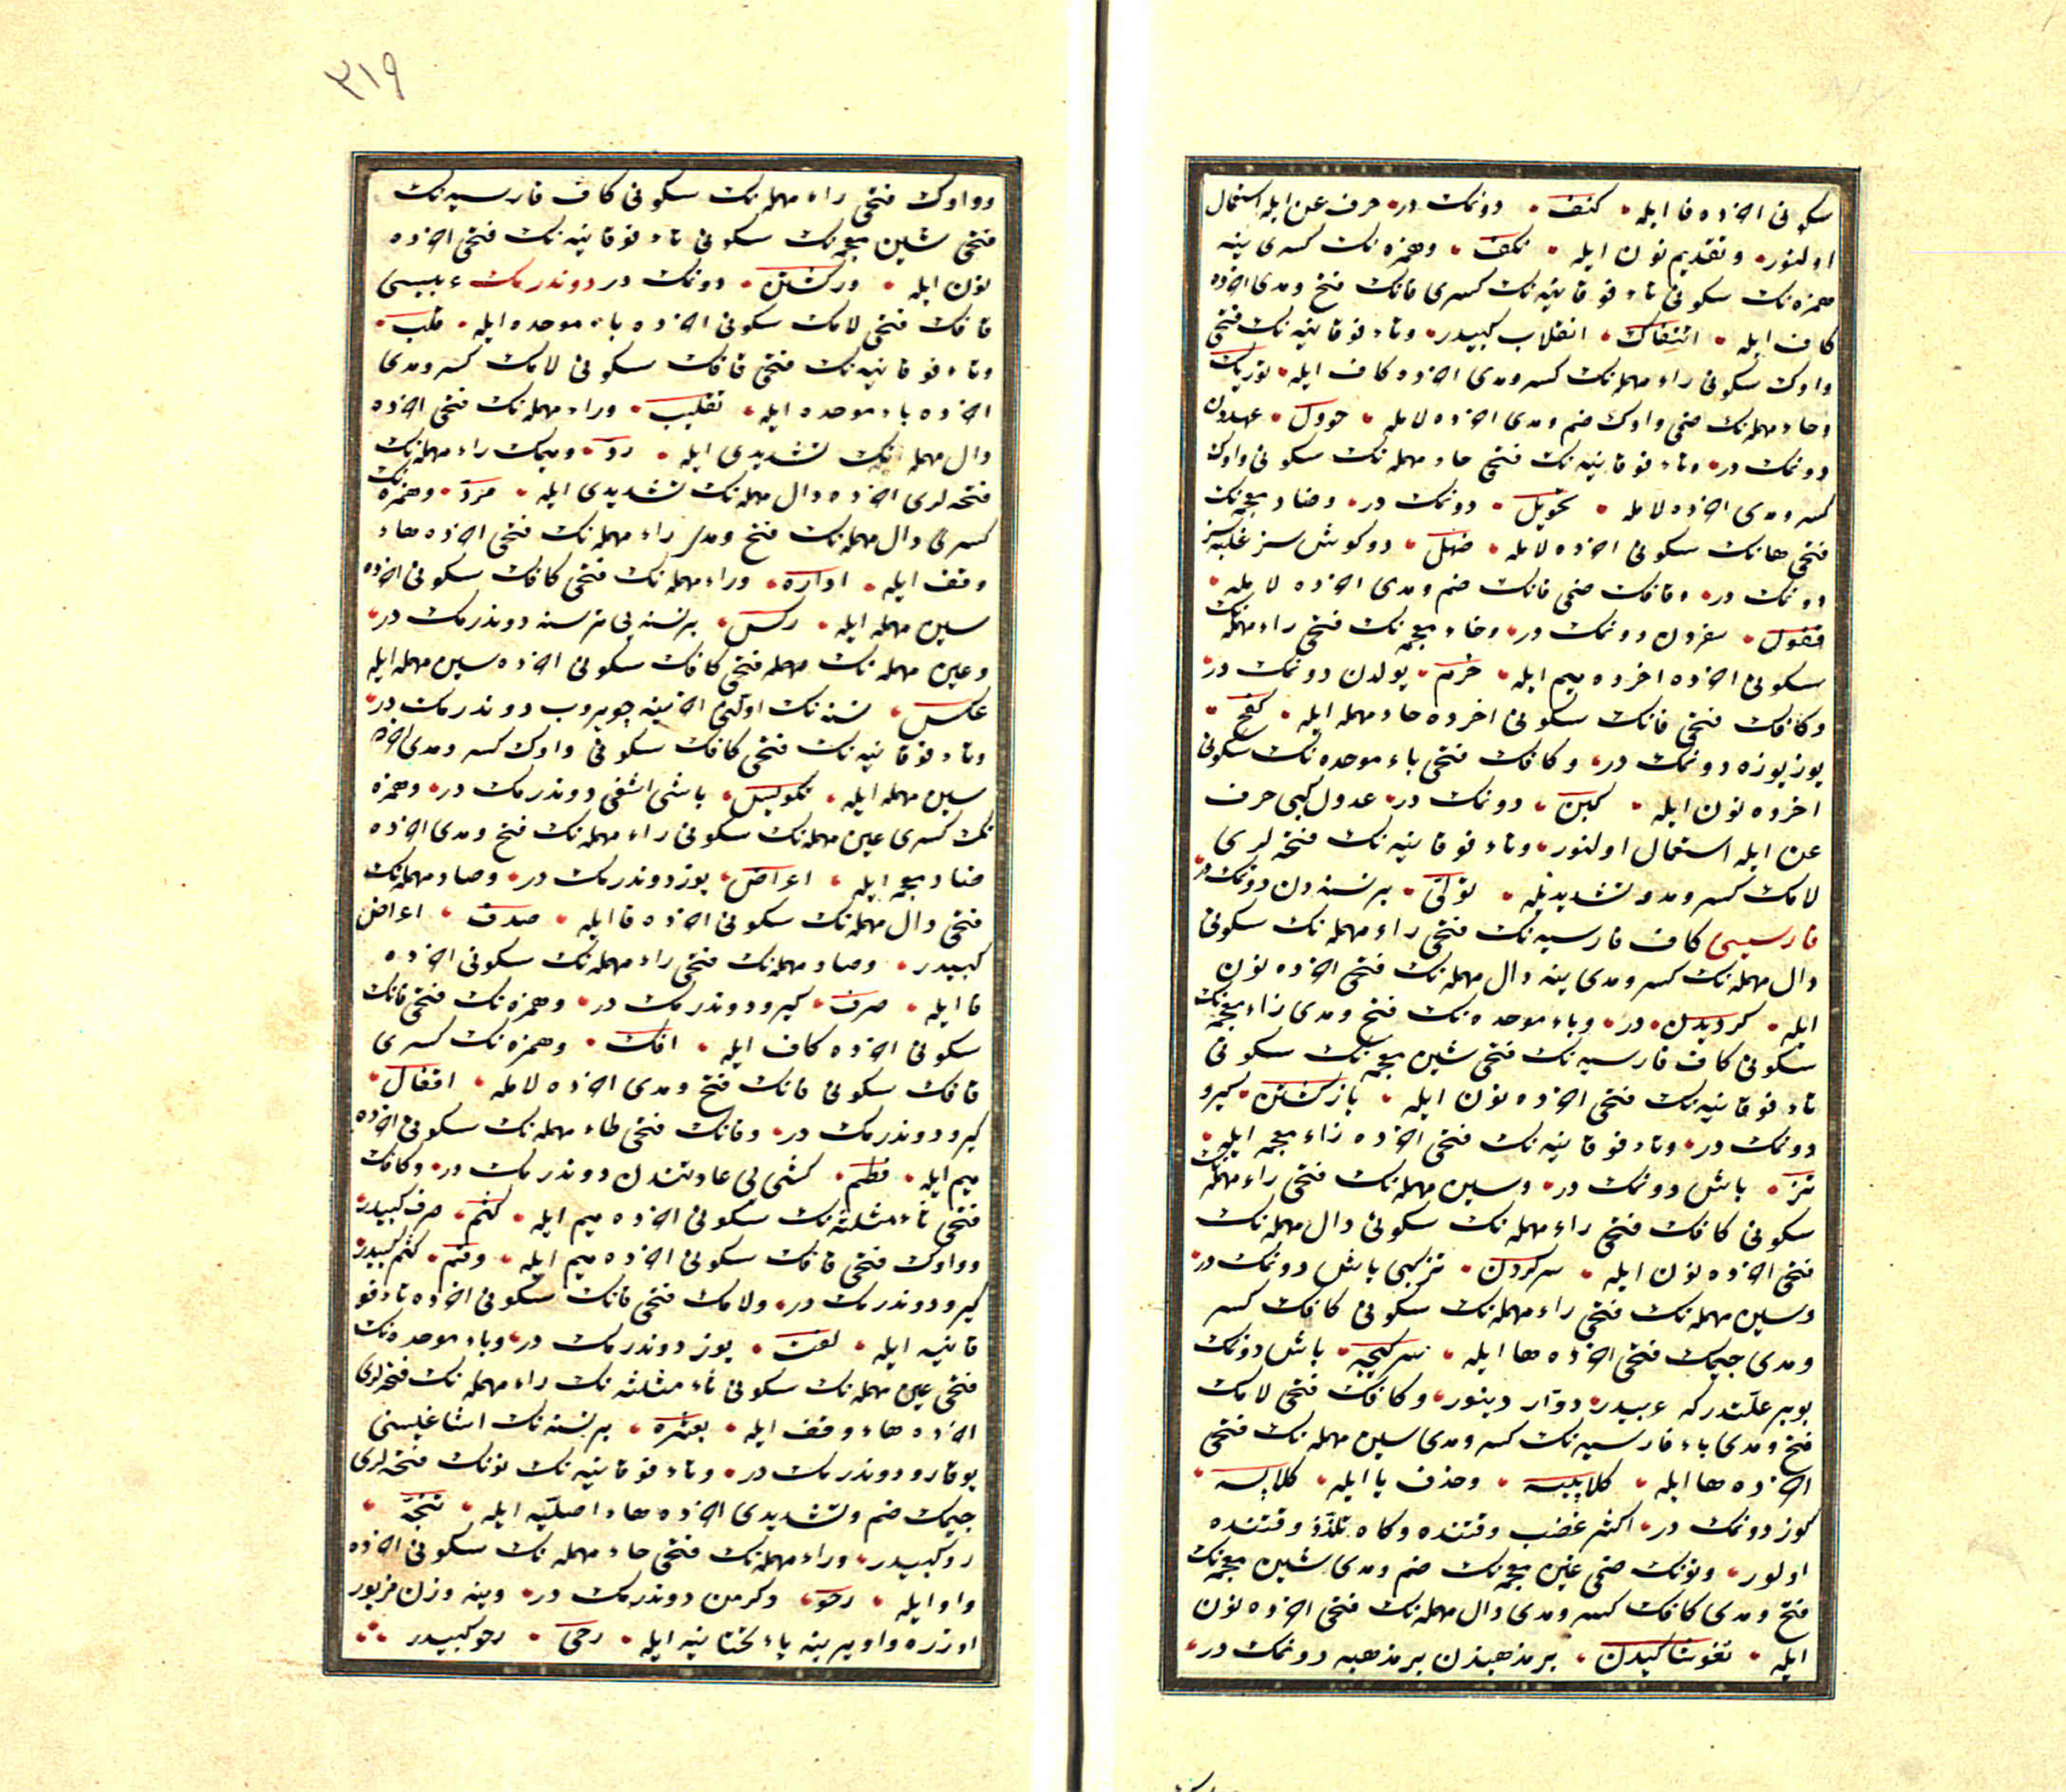 سكونی اخرده فا ایله • كنف • دونمك در • حرف عن ایله استعمال
اولنور • و تقدیم نون ایله • نكف • و همزه نك كسری ینه
همزه نك سكونی تاء فوقانیه نك كسری فانك فتح و مدی اخرده
كاف ایله • ائتفاك • انقلاب كبیدر • و تاء فوقانیه نك فتحی
واوك سكونی راء مهمله نك كسر و مدی اخرده كاف ایله • توریك
وحاء مهمله نك ضمی واوك ضم و مدی اخرده لامله • حوول • عهددن
دونمك در • و تاء فوقانیه نك فتحی حاء مهمله نك سكونی واوك
كسر و مدی اخرده لامله • تحویل • دونمك در • و ضاد معجمه نك
فتحی هانك سكونی اخرده لامله • ضهل • دوكوش سز غلبه سز
دونمك در • و قافك ضمی فانك ضم و مدی اخرده لامله •
قفول • سفردن دونمك در • و خاء معجمه نك فتحی راء مهمله نك
سكونی اخرده میم ایله • خرم • یولدن دونمك در •
و كافك فتحی فانك سكونی اخرده حاء مهمله ایله • كفح •
یوز یوزه دونمك در • و كافك فتحی باء موحده نك سكونی
اخرده نون ایله • كبن • دونمك در • عدول كبی حرف
عن ایله استعمال اولنور • و تاء فوقانیه نك فتحه لری
لامك كسر و مد و تشدیدیله • تولّی • بر نسنه دن دونمك در •
فارسیسی كاف فارسیه نك فتحی راء مهمله نك سكونی
دال مهمله نك كسر و مدی ینه دال مهمله نك فتحی اخرده نون
ایله • كردیدن • در • و باء موحده نك فتح و مدی زاء معجمه نك
سكونی كاف فارسیه نك فتحی شین معجمه نك سكونی
تاء فوقانیه نك فتحی اخرده نون ایله • بازكشتن • كیرو
دونمك در • و تاء فوقانیه نك فتحی اخرده زاء معجمه ایله •
تز • باش دونمك در • و سین مهمله نك فتحی راء مهمله نك
سكونی كافك فتحی راء مهمله نك سكونی دال مهمله نك
فتحی اخرده نون ایله • سركردن • تز كبی باش دونمك در •
و سین مهمله نك فتحی راء مهمله نك سكونی كافك كسر
و مدی جیمك فتحی اخرده ها ایله • سركیجه • باش دونمك
بو بر علتدر كه عربیده دوّار دینور • و كافك فتحی لامك
فتح و مدی باء فارسیه نك كسر و مدی سین مهمله نك فتحی
اخرده ها ایله • كلاپیسه • و حذف یا ایله • كلاپسه •
كوز دونمك در • اكثر غضب وقتنده و كاه تلذّذ وقتنده
اولور • و نونك ضمی غین معجمه نك ضم و مدی شین معجمه نك
فتح و مدی كافك كسر و مدی دال مهمله نك فتحی اخرده نون
ایله • نغوشاكیدن • بر مذهبدن بر مذهبه دونمك در •
٣١٩
و واوك فتحی راء مهمله نك سكونی كاف فارسیه نك
فتحی شین معجمه نك سكونی تاء فوقانیه نك فتحی اخرده
نون ایله • وركشتن • دونمك در دوندرمك عربیسی
قافك فتحی لامك سكونی اخرده باء موحده ایله • قلب •
و تاء فوقانیه نك فتحی قافك سكونی لامك كسر و مدی
اخرده باء موحده ایله • تقلیب • و راء مهمله نك فتحی اخرده
دال مهمله نك تشدیدی ایله • ردّ • و میمك راء مهمله نك
فتحه لری اخرده دال مهمله نك تشدیدی ایله • مردّ • و همزه نك
كسری دال مهمله نك فتح و مدی راء مهمله نك فتحی اخرده هاء
وقف ایله • اداره • و راء مهمله نك فتحی كافك سكونی اخرده
سین مهمله ایله • ركس • بر نسنه یی ترسنه دوندرمك در •
و عین مهمله نك مهمله فتحی كافك سكونی اخرده سین مهمله ایله
عكس • نسنه نك اولنی اخرینه چویروب دوندرمك در •
و تاء فوقانیه نك فتحی كافك سكونی واوك كسر و مدی اخرده
سین مهمله ایله • تكویس • باشی اشغی دوندرمك در • و همزه
نك كسری عین مهمله نك سكونی راء مهمله نك فتح و مدی اخرده
ضاد معجمه ایله • اعراض • یوز دوندرمك در • و صاد مهمله نك
فتحی دال مهمله نك سكونی اخرده فا ایله • صدف • اعراض
كبیدر • و صاد مهمله نك فتحی راء مهمله نك سكونی اخرده
فا ایله • صرف • كیرو دوندرمك در • و همزه نك فتحی فانك
سكونی اخرده كاف ایله • افك • و همزه نك كسری
قافك سكونی فانك فتح و مدی اخرده لامله • اقفال •
كیرو دوندرمك در • و فانك فتحی طاء مهمله نك سكونی اخرده
میم ایله • فطم • كشی یی عادتندن دوندرمك در • و كافك
فتحی ثاء مثلثه نك سكونی اخرده میم ایله • كثم • صرف كبیدر •
و واوك فتحی قافك سكونی اخرده میم ایله • وقم • كثم كبیدر •
كیرو دوندرمك در • و لامك فتحی فانك سكونی اخرده تاء فو
قانیه ایله • لفت • یوز دوندرمك در • و باء موحده نك
فتحی عین مهمله نك سكونی ثاء مثلثه نك راء مهمله نك فتحه لری
اخرده هاء وقف ایله • بعثره • بر نسنه نك اشاغیسنی
یوقارو دوندرمك در • و تاء فوقانیه نك نونك فتحه لری
جیمك ضم و تشدیدی اخرده هاء اصلیّه ایله • تنجّه •
رد كبیدر • و راء مهمله نك فتحی حاء مهمله نك سكونی اخرده
واو ایله • رحو • دكرمن دوندرمك در • وینه وزن مزبور
اوزره واو یرینه یاء تحتانیه ایله • رحی • رحو كبیدر